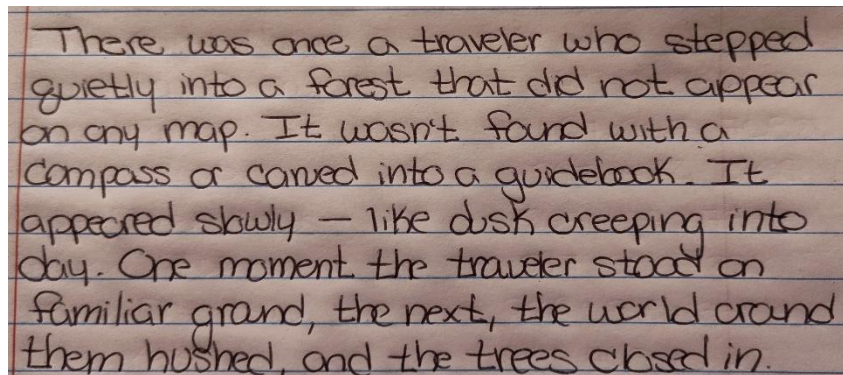 There was once a traveler who stepped
quietly into a forest that did not appear
on any map. It wasn't found with a
compass or carved into a guidebook. It
appeared slowly — like dusk creeping into
day. One moment the traveler stood on
familiar ground, the next, the world around
them hushed, and the trees closed in.